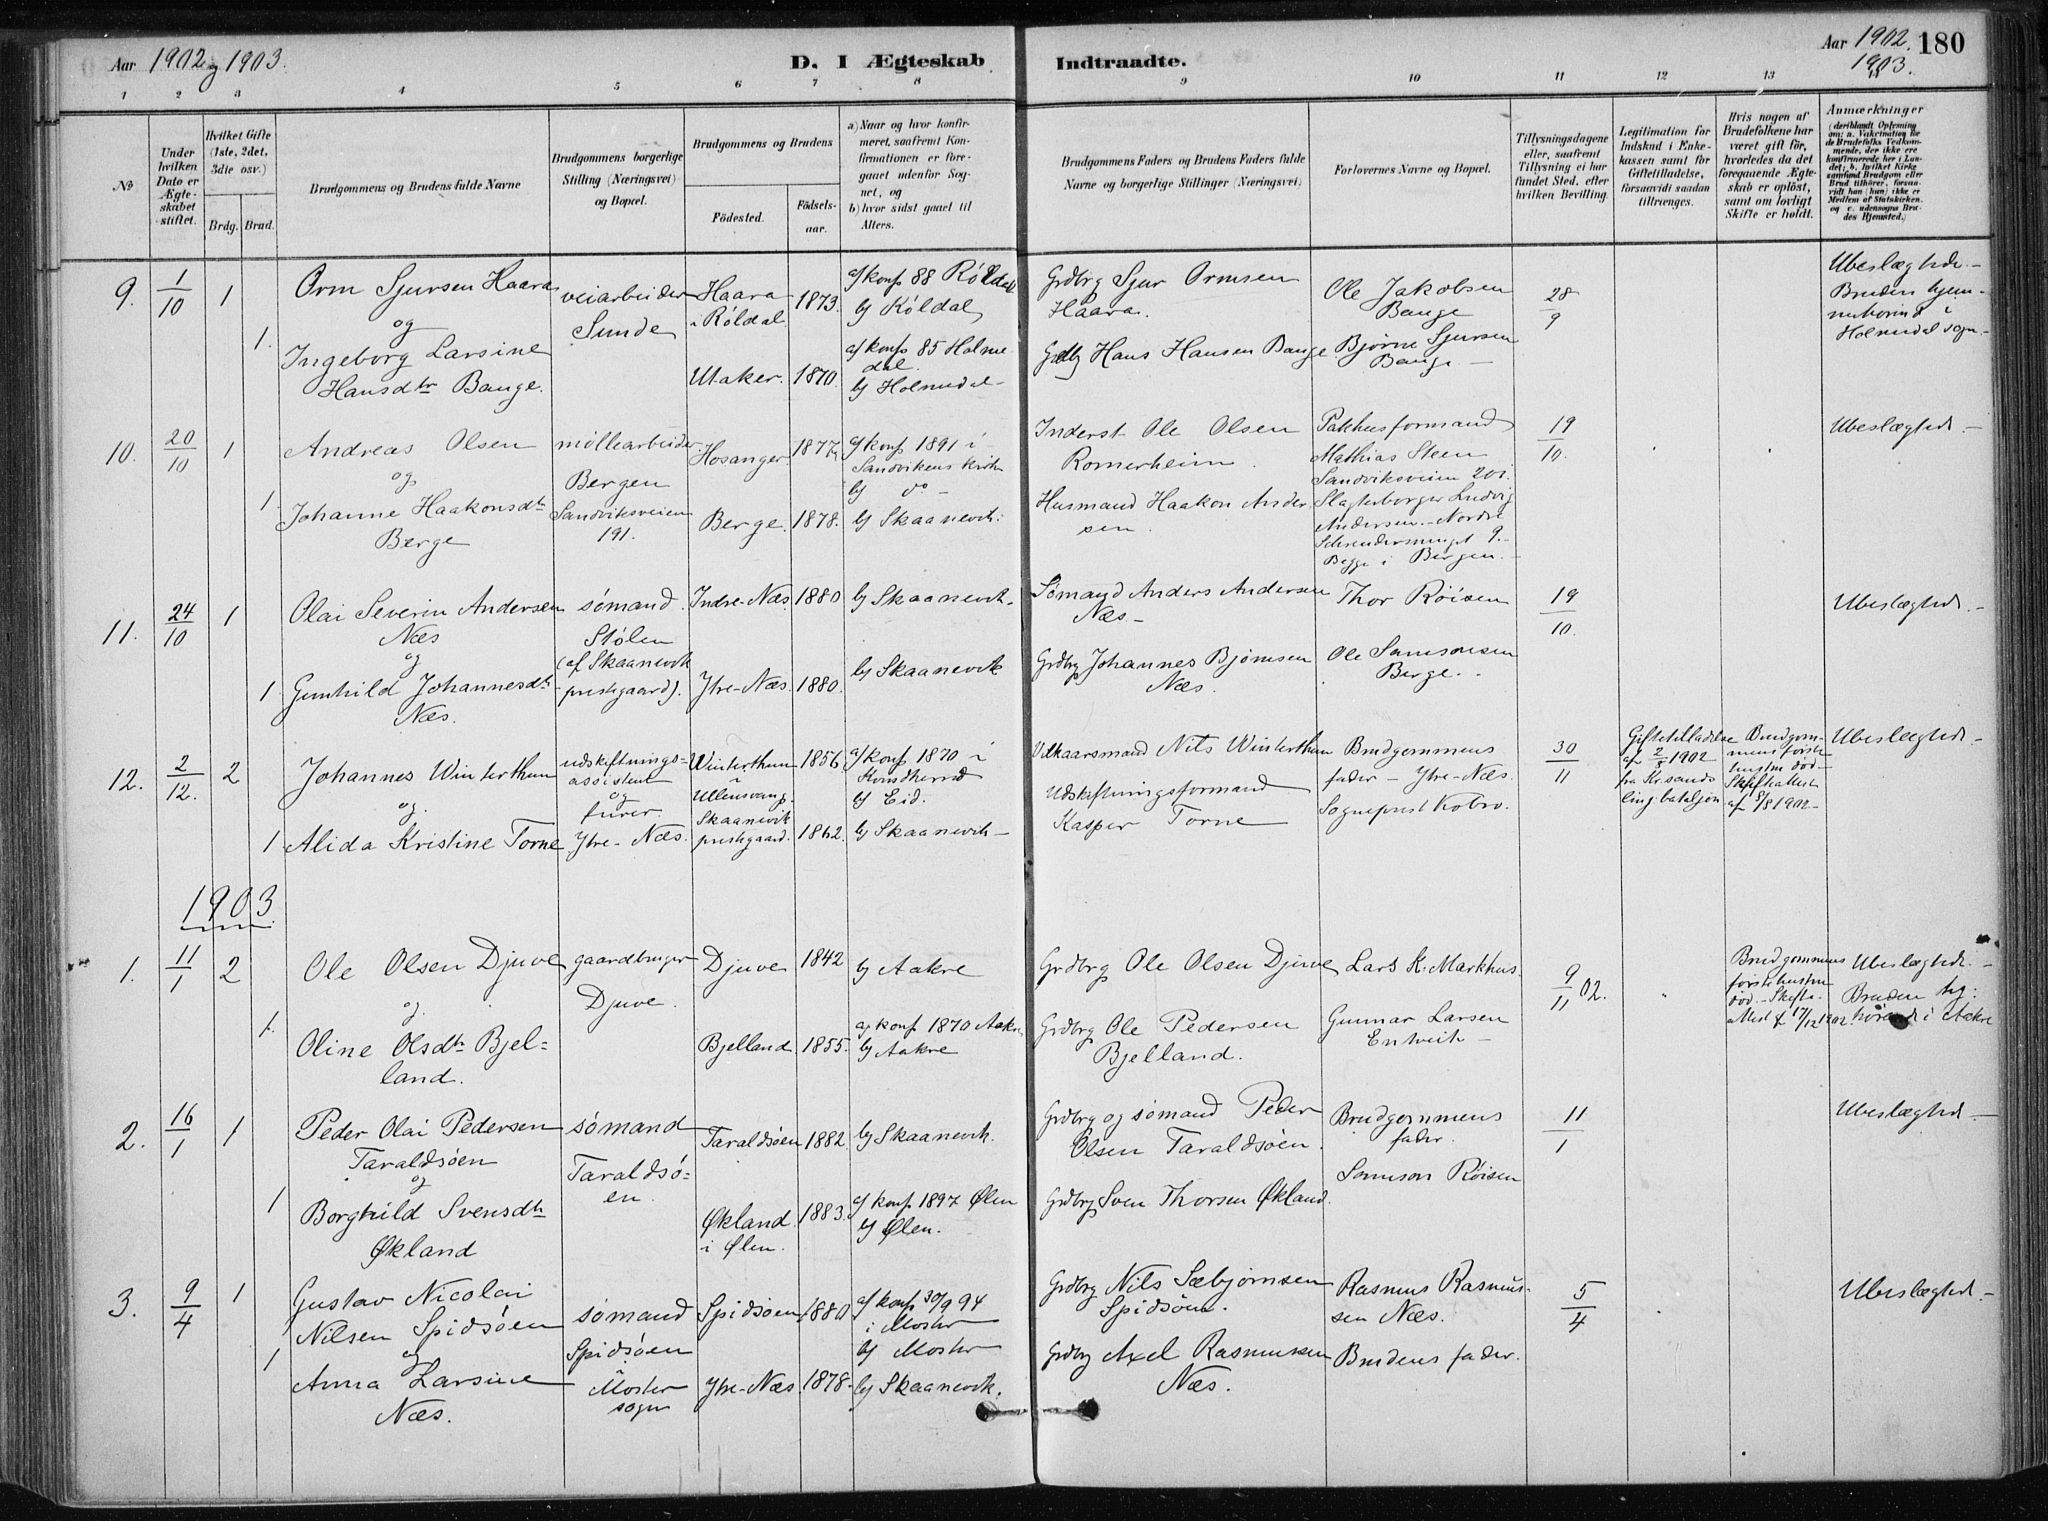 Aar 1902 og 1903.
D. I Ægteskab
Indtraadte.
Aar 1902. 180
1903.
1 2 3 4 5 6 7 8
9 10 11 12 13
No
Under hvilken Dato er Ægteskabet stiftet.
Hvilket Gifte (1ste, 2det, 3die osv.)
Brdg. Brud.
Brudgommens og Brudens fulde Navne
Brudgommens borgerlige Stilling (Næringsvei) og Bopæl.
Brudgommens og Brudens
Födested.
Födselsaar.
a) Naar og hvor konfirmeret, saafremt Konfirmationen er foregaaet udenfor Sognet, og
b) hvor sidst gaaet til Alters.
Brudgommens Faders og Brudens Faders fulde Navne og borgerlige Stillinger (Næringsvei)
Forlovernes Navne og Bopæl.
Tillysningsdagene eller, saafremt Tillysning ei har fundet Sted, efter hvilken Bevilling.
Legitimation for Indskud i Enkekassen samt for Giftetilladelse, forsaavidt saadan tiltrænges.
Hvis nogen af Brudefolkene har været gift för, hvorledes da det foregaaende Ægteskab er oplöst, samt om lovligt Skifte er holdt.
Anmærkninger
(deriblandt Oplysning om: a. Vakcination for de Brudefolks Vedkommende, der ikke ere konfirmerede her i Landet; b. hvilket Kirkesamfund Brudgom eller Brud tilhörer, forsaavidt han (hun) ikke er Medlem af Statskirken, og c. udensogns Brudes Hjemsted.)
9. 1/10 1
Orm Sjursen Haara
og
1. Ingeborg Larsine
Hansdtr Bauge.
veiarbeider
Sunde
Haara
i Röldal
1873.
Utaker. 1870.
a) konf 88 Röldal
b) Röldal
a) konf 85 Holmedal.
b) Holmedal
Grdbrg Sjur Ormsen
Haara.
Grdbg Hans Hansen Bauge
Ole Jakobsen
Bauge
Bjørne Sjursen
Bauge
28/9
Ubeslægtede.
Bruden hjemmehørend i
Holmedal sogn
10. 20/10 1
Andreas Olsen
og
1 Johanne Haakonsdtr
Berge
møllearbeider
Bergen
Sandviksveien
191.
Hosanger. 1877.
Berge. 1878.
a) konf 1891 i
Sandvikens kirke
b) do
b) Skaanevik
Inderst Ole Olsen
Romerheim
Husmand Haakon Andersen.
Pakhusformand
Mathias Steen
Sandviksveien 20i.
Slagterborger Ludvig
Andersen. Nordre
9.
Begge i Bergen.
19/10.
Ubeslægtede.
11. 24/10 1
Olai Severin Andersen
Næs
og
1 Gunhild Johannesdtr
Næs.
sømand.
Stølen
(af Skaanevik
prestegaard).
Indre-Næs 1880
Ytre-Næs. 1880.
b) Skaanevik.
b) Skaanevik
Sømand Anders Andersen
Næs
Grdbrg Johannes Bjørnsen
Næs.
Thor Röisen
Ole Samsonsen
Berge.
19/10.
Ubeslægtede.
12. 2/12. 2
Johannes Winterthun
og.
1 Alida Kristine Torne
udskiftningsassistent
og
furer.
Ytre-Næs.
Winterthun
i
Ullensvang.
1856
Skaanevik
prestegaard. 1862.
a) konf 1870 i
b) Eid.
b) Skaanevik
Vilkaarsmand Nils Winterthun
Udskiftningsformand
Kasper Torne
Brudgommens
fader - Ytre-Næs.
Sogneprest Kobro.
30/11
Giftetilladelse
af 2/5 1902
fra Kr.sands
ling. bataljon
Brudgommens første
hustru død
Skifteattest
af 8/8 1902
Ubeslægtede
1903.
1. 11/1 2
Ole Olsen Djuve
og.
1. Oline Olsdtr Bjelland.
gaardbruger
Djuve.
Djuve 1842
Bjelland. 1855.
b) Aakre
a) konf 1870 Aakre
b) Aakre
Grdbrg Ole Olsen Djuve
Grdbrg Ole Pedersen
Bjelland.
Lars K. Markhus.
Gunnar Larsen
9/11 02.
Brudgommens
første hustru
død. Skifteattest af 17/12 1902.
Ubeslægtede.
Bruden
i Aakre
2. 16/1 1
Peder Olai Pedersen
Taraldsöen
og
1 Borghild Svensdtr
Økland
sømand
Taraldsöen.
Taraldsöen 1882.
Økland
i Ølen.
1883.
b) Skaanevik.
a) konf 1897 Ølen
b) Ølen.
Grdbrg og sømand Peder
Olsen Taraldsöen.
Grdbrg Sven Thorsen Økland.
Brudgommens
fader.
Samson Röisen
11/1
Ubeslægtede.
3. 9/4 1
Gustav Nicolai
Nilsen Spidsöen
og
1 Anna Larsine
Næs.
sømand
Spidsöen
i
Moster
sogn
Spidsöen 1880
Ytre-Næs. 1878.
a) konf 30/9 94
i Moster
b) Moster
b) Skaanevik.
Grdbrg Nils Sæbjørnsen
Spidsöen.
Grdbrg Axel Rasmussen
Næs.
Rasmus Rasmussen Næs.
Brudens fader.
5/4
Ubeslægtede.